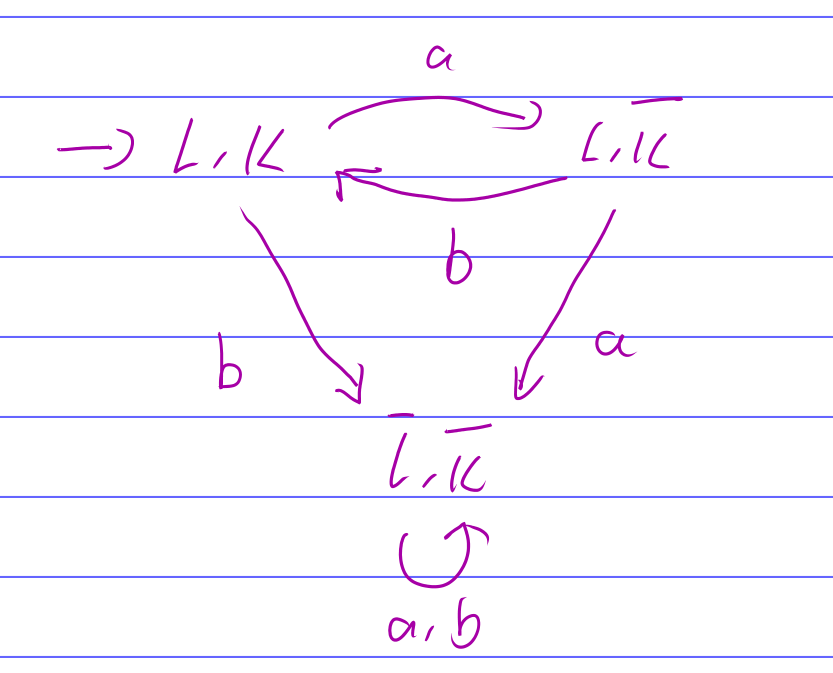 a
→ L, K L, K̅
b
b a
L̅, K̅
a, b